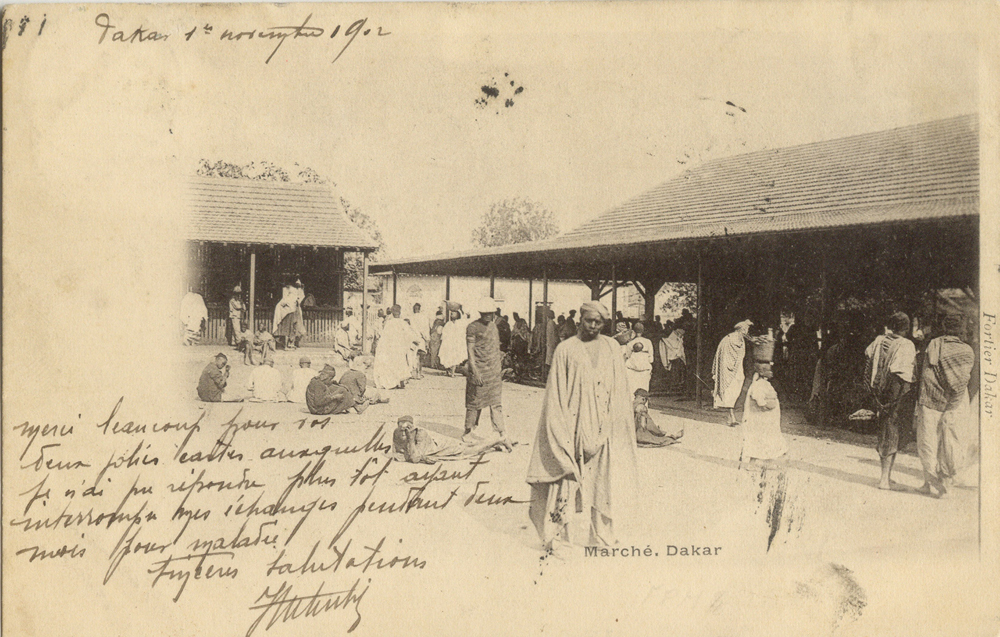 Dakar 1er novembre 1902
merci beaucoup pour vos
deux jolies cartes auxquelles
je n'ai pu répondre plus tôt ayant
interrompu mes échanges pendant deux
mois pour maladie
Sincères salutations
Marché. Dakar
Fortier Dakar